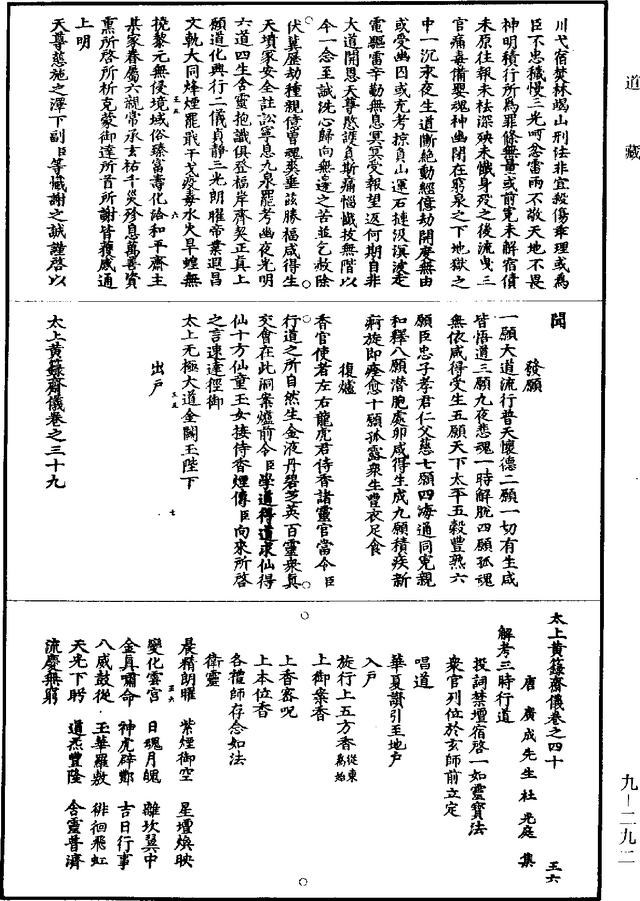 道藏
川弋宿焚林竭山刑法非宜殺傷乖理或為
臣不忠穢慢三光呵忿雷雨不敬天地不畏
神明積行所為罪條無量或前冤未解宿債
未原往報未袪深殃未懺身歿之後流曳三
官痛毒備嬰魂神幽閉在窮泉之下地獄之
中一沉永夜生道斷絶動經億劫開度無由
或受幽囚或充考掠負山運石揵汲溟波走
電驅雷辛勤無息冥冥受報望返何期自非
大道開恩天尊愍護負斯痛惱懺拔無階以
今一念至誠洗心歸向無邊之苦並乞赦除
伏冀歷劫種親億曾魂爽垂該勝福咸得生
天墳冢安全註訟寧息九泉罷考幽夜光明
六道四生含靈抱識俱登福岸齊契正真上
願道化興行二儀貞靜三光朗曜帝業遐昌
文軌大同烽煙罷戢干戈疫毒水火旱蝗無
撓黎元無侵境域俗臻富壽化洽和平齋主
某家眷屬六親常承玄祐千災殄息萬善資
熏所啓所祈克蒙御達所首所謝皆獲感通
上明
天尊慈施之澤下副臣等懺謝之誠謹啓以
聞
發願
一願大道流行普天懷德二願一切有生咸
皆悟道三願九夜悲魂一時解脫四願孤魂
無依咸得受生五願天下太平五穀豐熟六
願臣忠子孝君仁父慈七願四海通同冤親
和釋八願潛胞處卵咸得生成九願積疾新
痾旋即痊愈十願孤露衆生豐衣足食
復爐
香官使者左右龍虎君侍香諸靈官當令臣
行道之所自然生金液丹碧芝英百靈衆真
交會在此洞案爐前令臣學道得道求仙得
仙十方仙童玉女接侍香煙傳臣向來所啓
之言速達徑御
太上無極大道金闕玉陛下
出戶
太上黃籙齋儀卷之三十九
太上黃籙齋儀卷之四十
唐廣成先生杜光庭集
解考三時行道
投詞禁壇宿啓一如靈寶法
衆官列位於玄師前立定
唱道
華夏讚引至地戶
入戶
旋行上五方香從東為始
上御案香
上香密呪
上本位香
各禮師存念如法
衛靈
晨精朗曜 紫煙御空 星壇煥映
變化雲宮 日魂月魄 離坎巽中
金真嘯命 神虎辟鄷 吉日行事
八威鼓從 玉華羅敷 徘徊飛虹
天光下眄 道炁豐隆 含靈普濟
流慶無窮
九－二九二